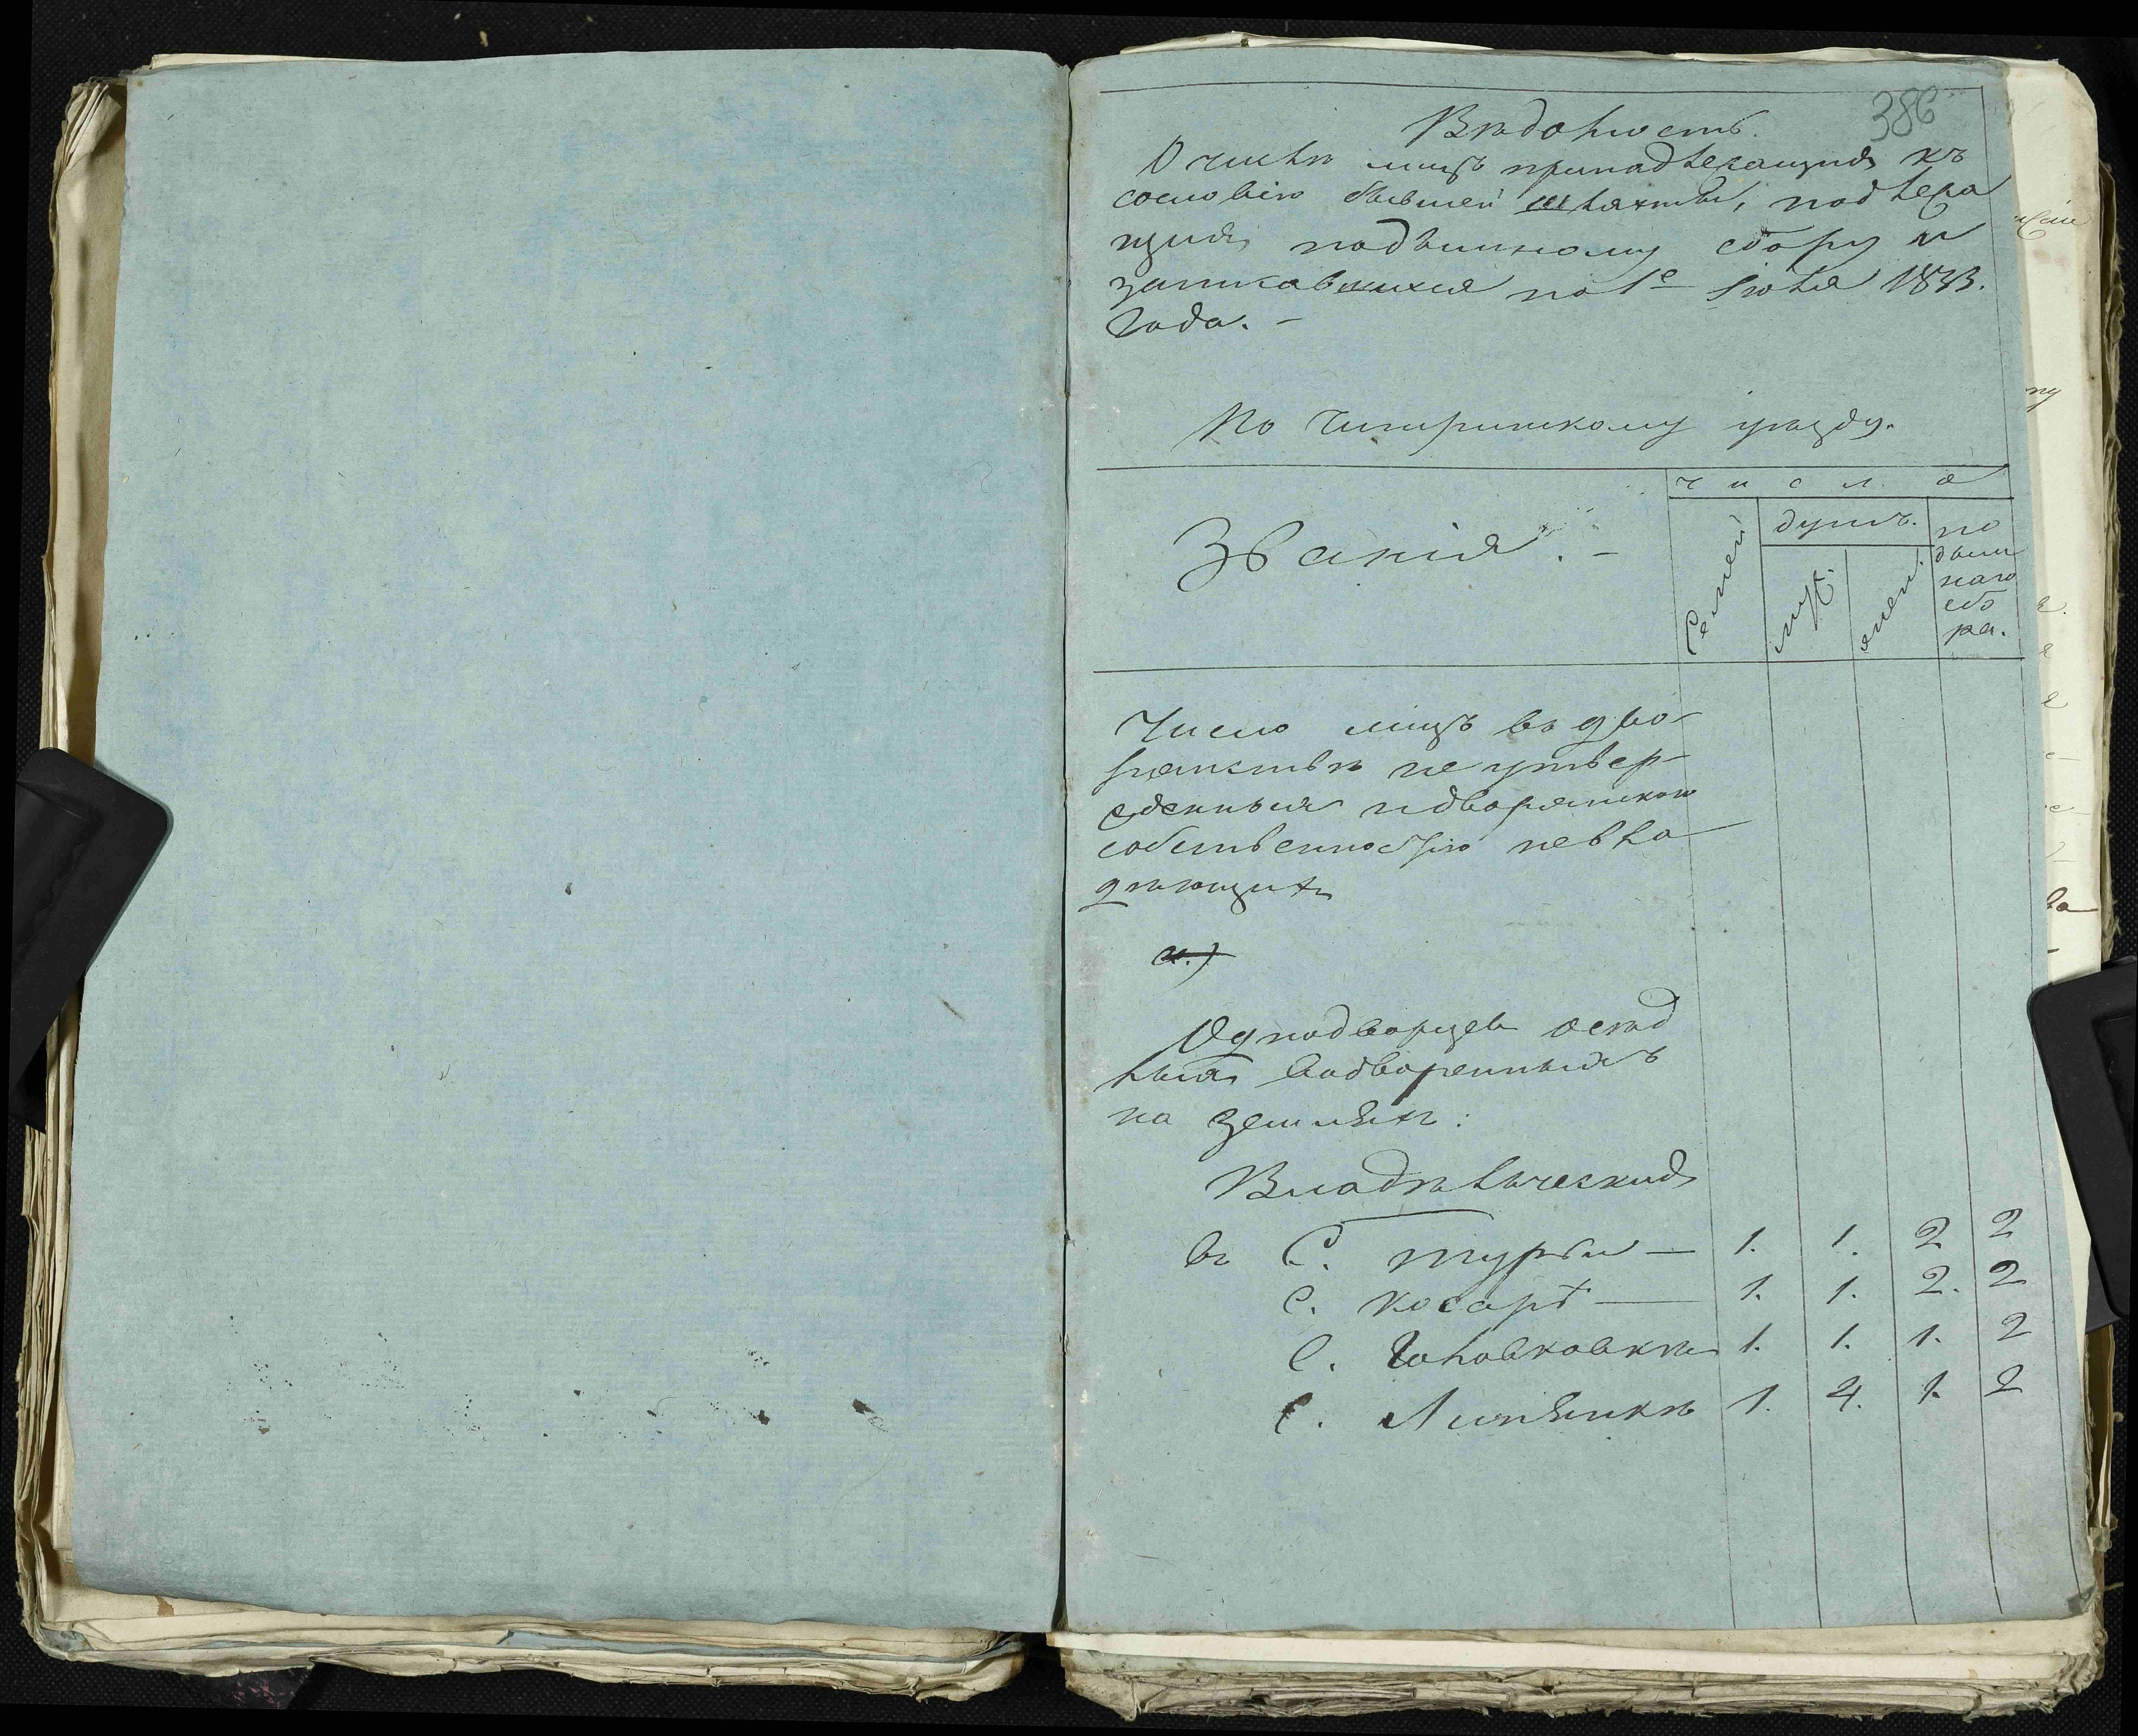 386
Вѣдомость.
О числѣ лицъ принадлежащихъ къ
сословію бывшей шляхты, подлежа
щихъ подымному сбору и
записавшихся по 1е Іюля 1833.
года. –
По Чигиринскому уѣзду.
Числа
Званія. –
Семей
душъ.
муж.
жен.
по
дым
наго
сбо
ра.
Число лицъ въ дво-
рянствѣ не утвер-
жденныхъ и дворянскою
собственностію невла-
дѣющихъ
а.)
Однодворцевъ осѣд
лыхъ водворенныхъ
на земляхъ:
Владѣльческихъ
въ С. Турьи — 1. 1. 2 2
С. Косарѣ — 1. 1. 2. 2
С. Головковкѣ 1. 1. 1. 2
С. Липянкѣ 1. 4. 1. 2